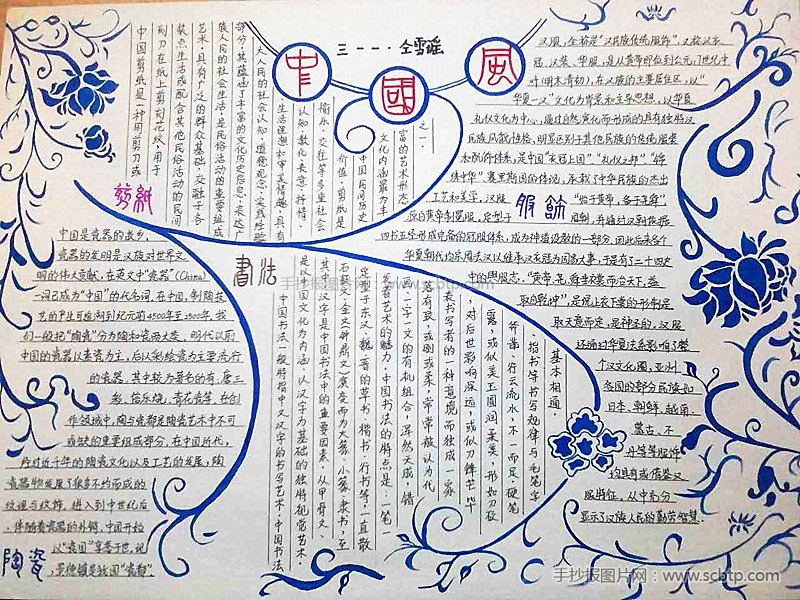 三一一·仝雪瑶
中國風
剪紙
中国剪纸是一种用剪刀或
刻刀在纸上剪刻花纹，用于
装点生活或配合其他民俗活动的民间
艺术。具有广泛的群众基础，交融于各
族人民的社会生活，是民俗活动的重要组成
部分。其蕴涵了丰富的文化历史信息，表达广
大人民的社会认知、道德观念、实践经验
生活理想和审美情趣，具有
认知、教化、表意、抒情、
愉乐、交往等多重社会
价值。剪纸是
中国民间历史
文化内涵最为丰
富的艺术形态
之一．
中国是瓷器的故乡，
瓷器的发明是汉族对世界文
明的伟大贡献，在英文中“瓷器”（China）
一词已成为“中国”的代名词。在中国，制陶技
艺的产生可追溯到纪元前4500年至2500年，我
们一般把“陶瓷”分为陶和瓷两大类，明代以前
中国的瓷器以素瓷为主，后以彩绘瓷为主要流行
的瓷器，其中较为著名的有：唐三
彩、青花瓷等，在创
作领域中，陶与瓷都是陶瓷艺术中不可
或缺的重要组成部分，在中国近代，
经对近千年的陶瓷文化以及工艺的发展，陶
瓷器物发展了很多不均而成的
纹理与纹饰，进入到中世纪后
，伴随着瓷器的外销，中国开始
以“瓷国”享誉于世，现
，景德镇是我国“瓷都”．
陶瓷
書法
中国书法一般特指中文汉字的书写艺术，中国书法
是以中国文化为内涵、以汉字为基础的独特视觉艺术。
其中汉字是中国书法中的重要因素，从甲骨文、
石鼓文、金文（钟鼎文）演变而为大篆、小篆、隶书，至
定型于东汉、魏、晋的草书、楷书、行书等，一直散
发着艺术的魅力。中国书法的特点是：一笔一
画、一字一文的有机组合，浑然天成，错
落有致，或刚或柔，常常被认为代
表书写者的一种意境而独成一家
，对后世影响深远，或似刀锋芒毕
露，或似美玉圆润柔美，形如刀砍
斧凿、行云流水，不一而足。硬笔
、指书等书写规律与毛笔字
基本相通．
服飾
汉服，全称是“汉民族传统服饰”，又称汉衣
冠、汉装、华服，是从黄帝即位到公元17世纪中
叶（明末清初），在汉族的主要居住区，以“
华夏一汉”文化为背景和主导思想，以华夏
礼仪文化为中心，通过自然演化而形成的具有独特汉
民族风貌性格，明显区别于其他民族的传统服装
和配饰体系，是中国“衣冠上国”、“礼仪之邦”、“锦
绣中华”、赛里斯国的体现，承载了中华民族的杰出
工艺和美学。汉服“始于黄帝，备于尧舜”
，源自黄帝制冕服，定型于
四书五经形成完备的冠服体系，成为神道设教的一部分。因此后来各个
华夏朝代均宗周法汉以继承汉衣冠为国家大事，于是有了二十四史
中的舆服志。“黄帝、尧、舜垂衣裳而治天下，益
取自乾坤”，是说上衣下裳的形制是
取天意而定，是神圣的。汉服
还通对华夏法系影响了整
个汉文化圈，亚州
各国的部分民族如
日本、朝鲜、越南、
蒙古、不
丹等等服饰
均具有或借鉴汉
服特征．从中充分
显示了汉族人民的勤劳智慧．
手抄报图片网 www.scbtp.com
手抄报图片网：www.scbtp.com